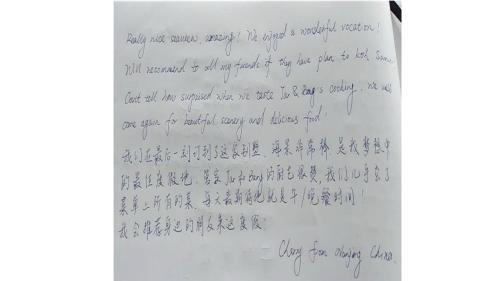 Really nice seaview, amazing! We enjoyed a wonderful vacation!
Will recommend to all my friends if they have plan to koh Samui
Can't tell how surprised when we taste & Bang's cooking. We will
come again for beautiful scenery and delicious food!
我们在最后一刻订到了这家别墅，海景非常棒，是我梦想中
的最佳度假地。管家 & Bang 的厨艺很赞，我们几乎点了
菜单上所有的菜，每天最期待他就是午/晚餐时间！
我会推荐身边的朋友来这度假！
from Nanjing China.